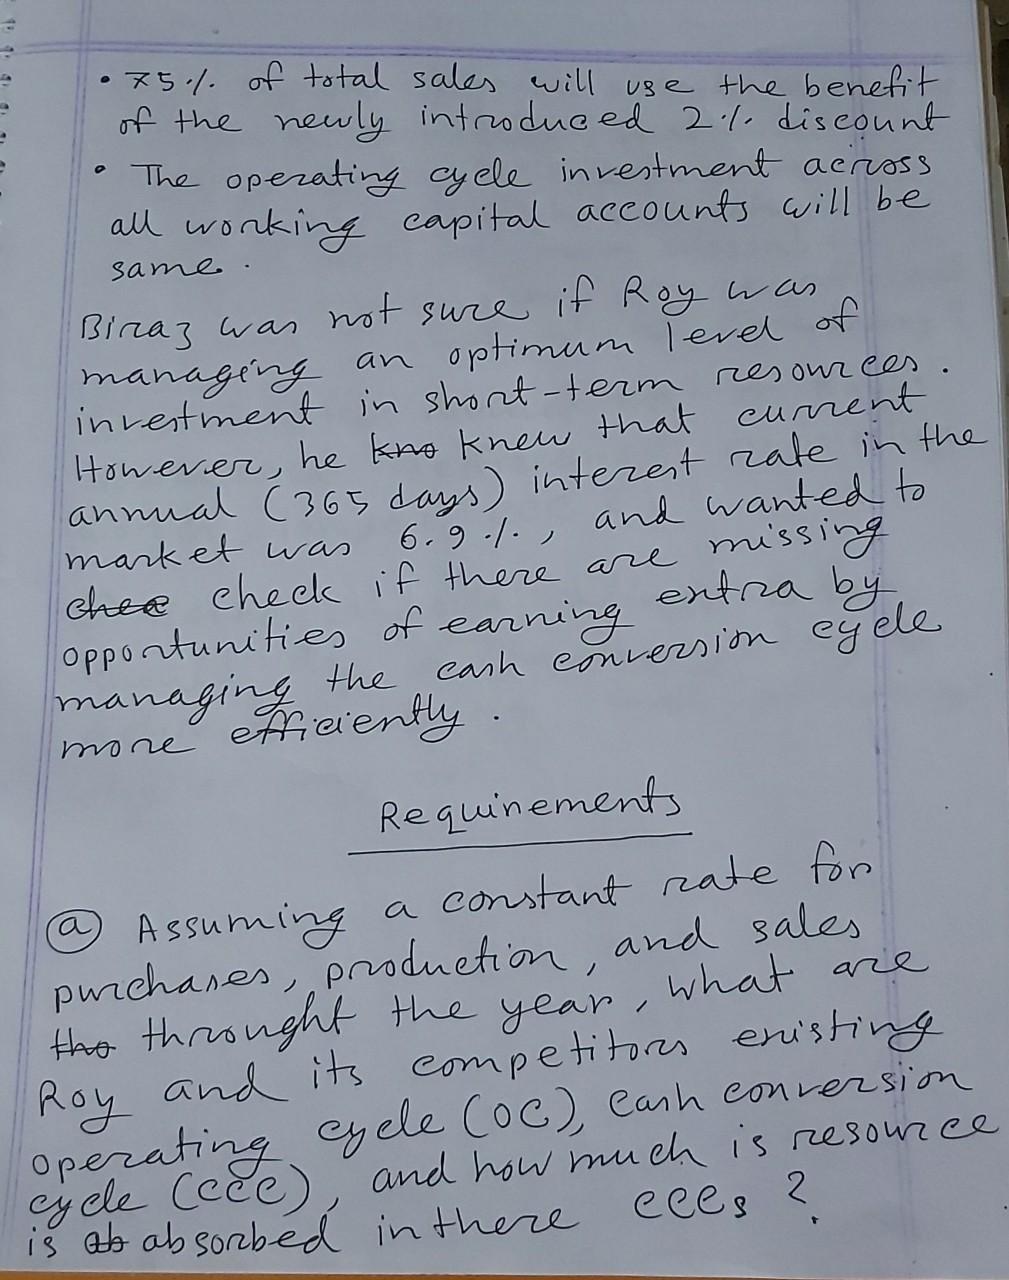 • 75% of total sales will use the benefit
of the newly introduced 2% discount
• The operating cycle investment across
all working capital accounts will be
same.
Biraz was not sure if Roy was
managing an optimum level of
investment in short-term resources.
However, he kno knew that current
annual (365 days) interest rate in the
market was 6.9%, and wanted to
chee check if there are missing
opportunities of earning extra by
managing the cash conversion cycle
more efficiently.
Requirements
(a) Assuming a constant rate for
purchases, production, and sales
tho throught the year, what are
Roy and its competitors existing
operating cycle (OC), cash conversion
cycle (CCC), and how much is resource
is ab absorbed in there CCCs?